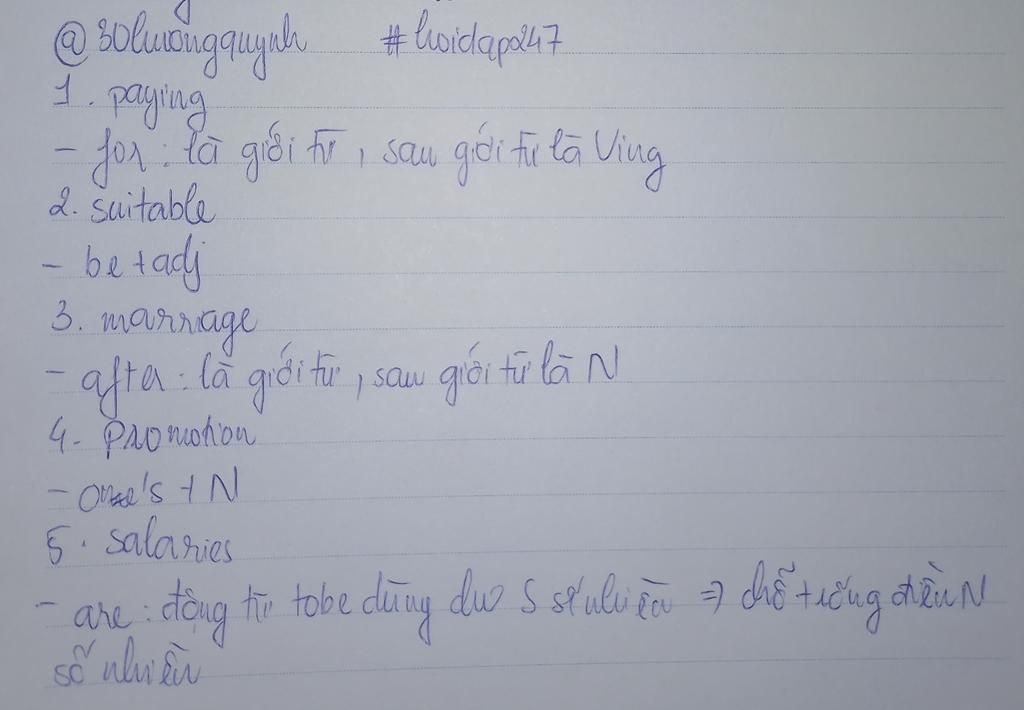 @30luongquynh #hoidap247
1. paying
- for: là giới từ, sau giới từ là Ving
2. suitable
- be + adj
3. marriage
- after: là giới từ, sau giới từ là N
4. promotion
- one's + N
5. salaries
- are: động từ tobe dùng cho S số nhiều => chỗ trống điền N
số nhiều